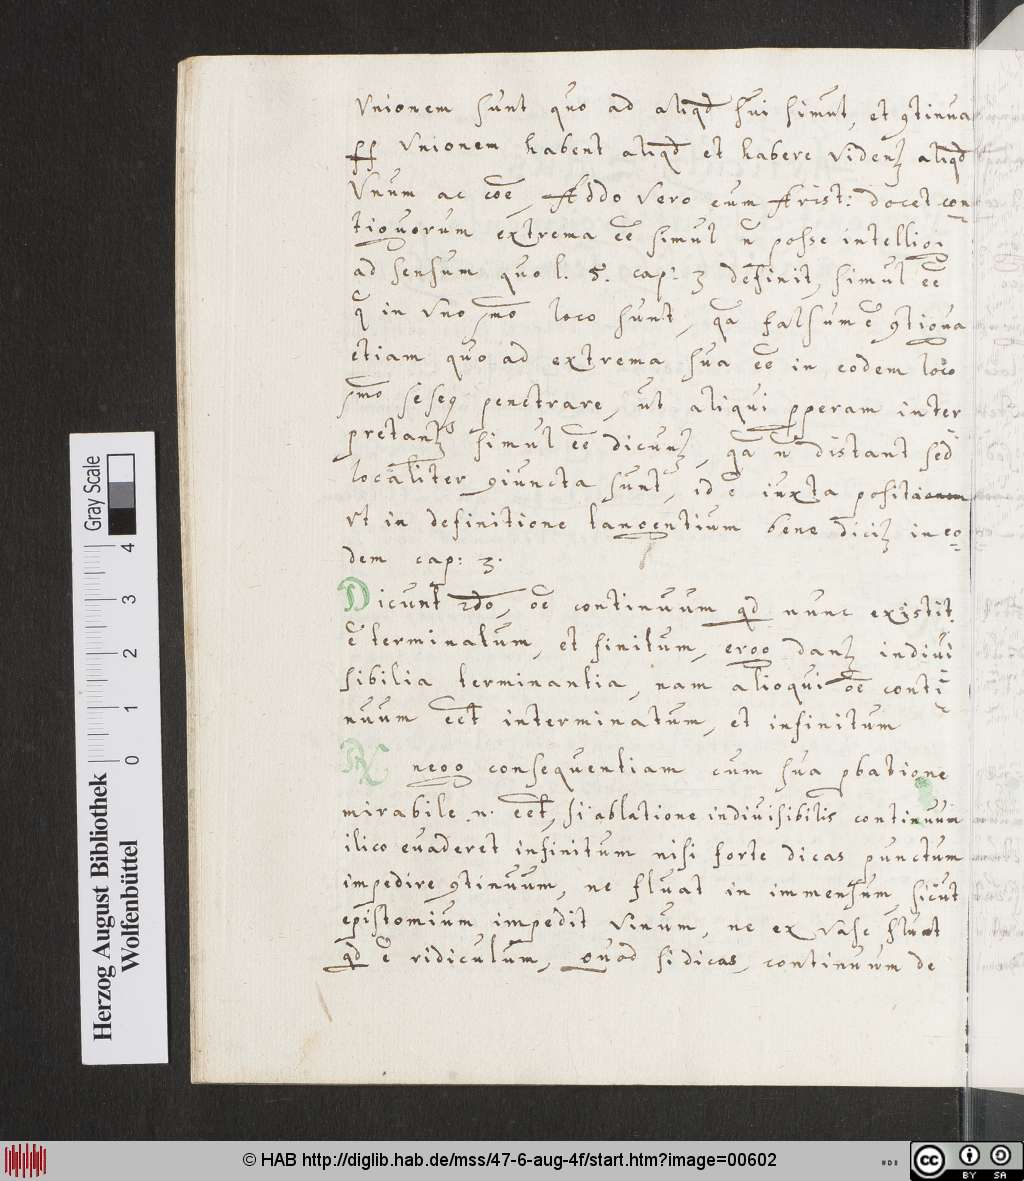 Vnionem sunt quo ad aliqd sui simul, et 9tinua
ss Vnionem habent aliqd et habere videnʒ aliqd
Vnum ac cōe, Addo vero cum Arist: docet con-
tiguorum extrema ēē simul n̄ posse intelligi
ad sensum quo l. 5. cap: 3 definit, simul ēē
q̄ in vno p̄mo loco sunt, q̄a falsum ē 9tigua
etiam quo ad extrema sua ēē in eodem loco
p̄mo seseq penetrare, ut aliqui pperam inter
pretanʒ simul ēē dicunʒ, q̄a n̄ distant sed
localiter 9iuncta sunt, id ē iuxta posita
vt in definitione tangentium bene diciʒ in eo-
dem cap: 3.
Dicunt 2do, oē continuum qd nunc existit
ē terminatum, et finitum, ergo danʒ indivi
sibilia terminantia, nam alioqui oē conti-
nuum eēt interminatum, et infinitum
At nego consequentiam cum sua pbatione
mirabile .n. eēt, si ablatione indiuisibilis continuum
ilico euaderet infinitum nisi forte dicas punctum
impedire 9tinuum, ne fluat in immensum, sicut
epistomium impedit vinum, ne ex vase fluat
qd ē ridiculum, Quod si dicas, continuum de
Gray Scale
0 1 2 3 4
Herzog August Bibliothek
Wolfenbüttel
© HAB http://diglib.hab.de/mss/47-6-aug-4f/start.htm?image=00602
cc BY SA